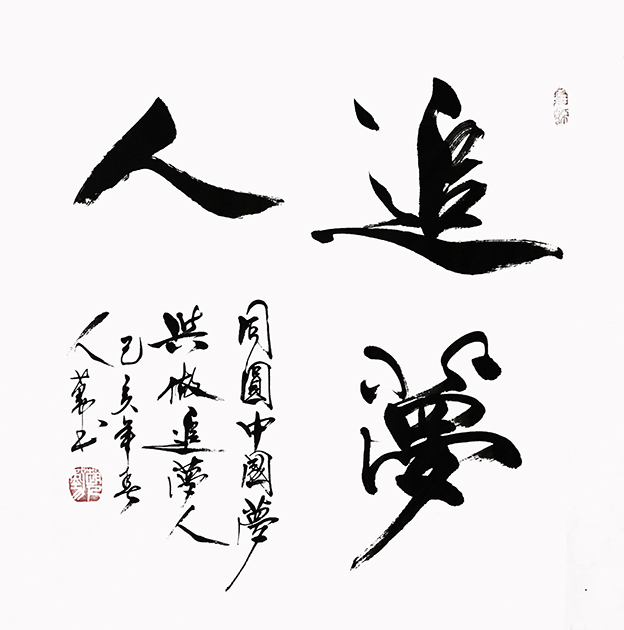 追夢
人
同圓中國夢
共做追夢人
己亥年春
人书